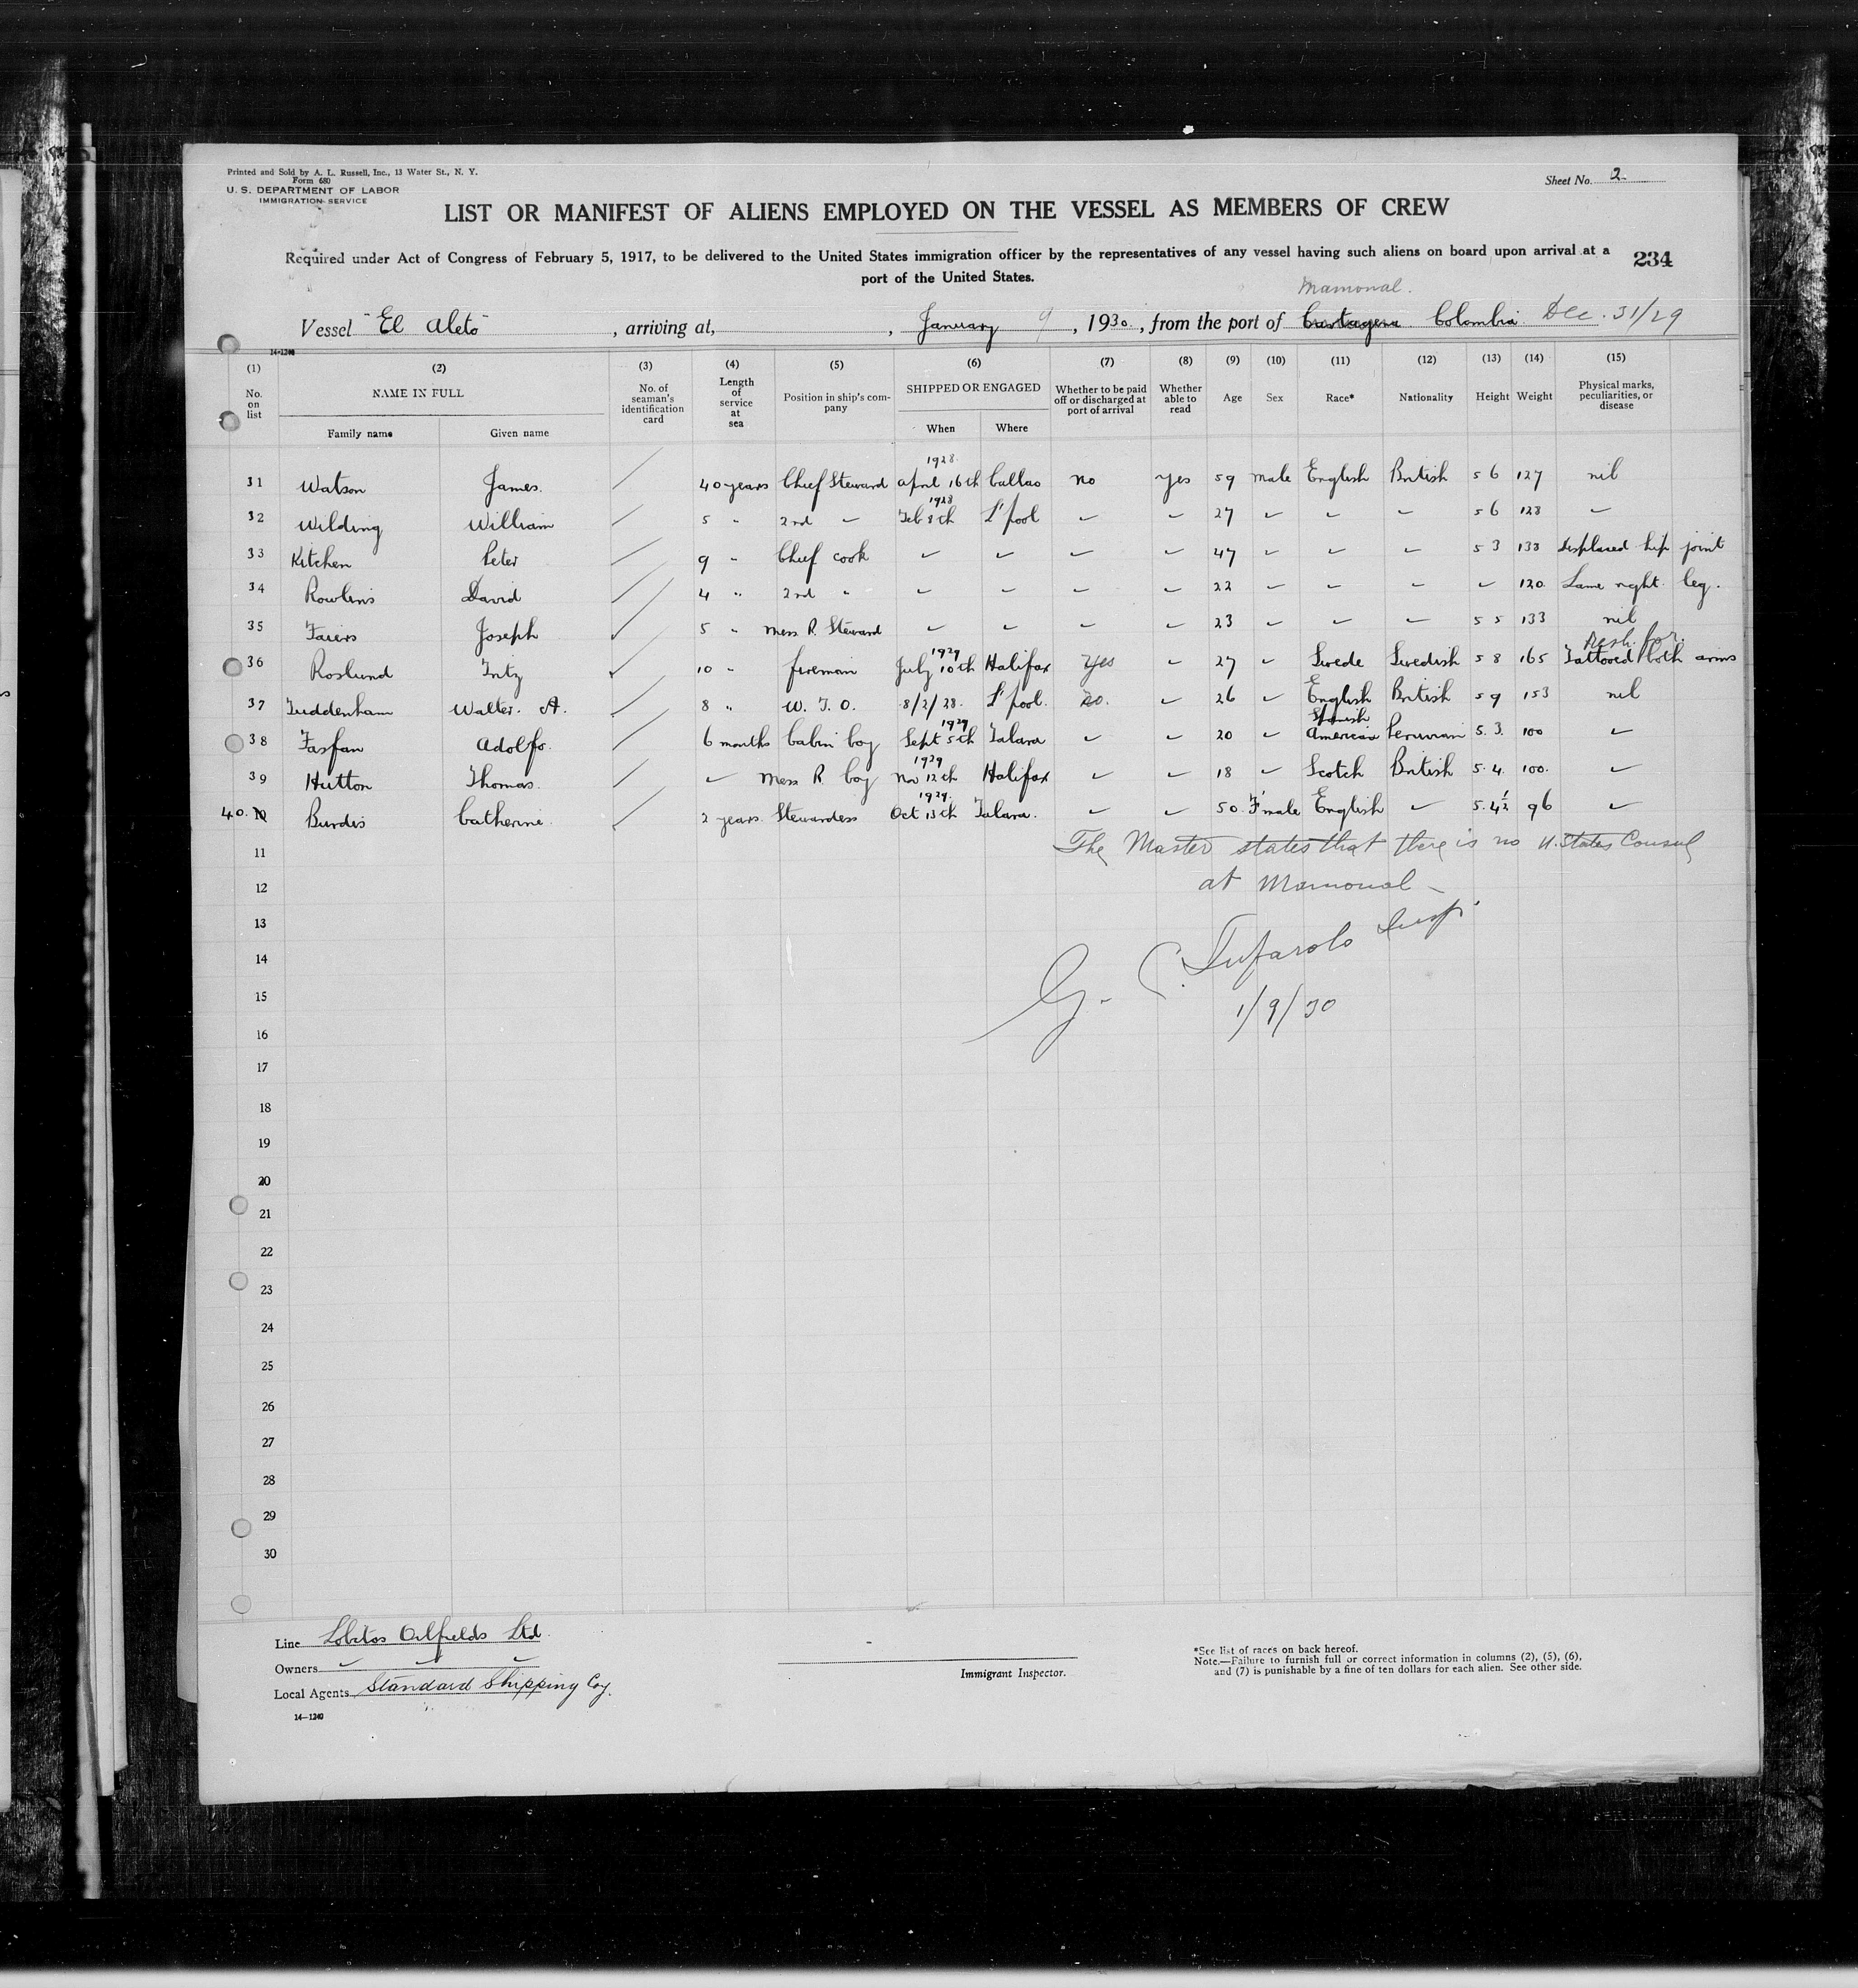 Printed and Sold by A. L. Russell, Inc., 13 Water St., N. Y.
Form 680
U. S. DEPARTMENT OF LABOR
IMMIGRATION SERVICE
Sheet No. 2
LIST OR MANIFEST OF ALIENS EMPLOYED ON THE VESSEL AS MEMBERS OF CREW
Required under Act of Congress of February 5, 1917, to be delivered to the United States immigration officer by the representatives of any vessel having such aliens on board upon arrival at a
port of the United States.
234
Mamonal.
Vessel "El Aleto" , arriving at, , January 9 , 1930 , from the port of Cartagena Colombia Dec. 31/29
14-1240
(1) (2) (3) (4) (5) (6) (7) (8) (9) (10) (11) (12) (13) (14) (15)
No. on list NAME IN FULL No. of seaman's identification card Length of service at sea Position in ship's company SHIPPED OR ENGAGED Whether to be paid off or discharged at port of arrival Whether able to read Age Sex Race* Nationality Height Weight Physical marks, peculiarities, or disease
Family name Given name When Where
31 Watson James. 40 years Chief Steward 1928 April 16th Callao no yes 59 male English British 5 6 127 nil
32 Wilding William 5 " 2nd 1928 Feb 8th L'pool 27 5 6 128
33 Kitchen Peter 9 " Chief cook 47 5 3 138 Displaced hip joint
34 Rowlins David 4 " 2nd " 22 120 Lame right leg.
35 Faiers Joseph 5 " Mess R. Steward 23 5 5 133 nil
36 Roslund Fritz 10 " fireman 1929 July 10th Halifax Yes 27 Swede Swedish 5 8 165 Tattooed both arms
37 Tuddenham Walter. A. 8 " W. T. O. 8/2/28. L'pool. no. 26 English British 5 9 153 nil
38 Farfan Adolfo. 6 months Cabin boy 1929 Sept 5th Talara 20 Spanish American Peruvian 5. 3. 100
39 Hutton Thomas. Mess R boy 1929 Nov 12th Halifax 18 Scotch British 5. 4. 100.
40. 10 Burdis Catherine. 2 years. Stewardess 1929. Oct 13th Talara. 50. F'male English 5. 4½ 96
11
The Master states that there is no U. States Consul
12
at Mamonal -
13
14
G. C. Insp.
15
1/9/30
16
17
18
19
20
21
22
23
24
25
26
27
28
29
30
Line Lobitos Oilfields Ltd.
Owners
Local Agents Standard Shipping Coy.
14-1240
Immigrant Inspector.
*See list of races on back hereof.
Note.—Failure to furnish full or correct information in columns (2), (5), (6),
and (7) is punishable by a fine of ten dollars for each alien. See other side.